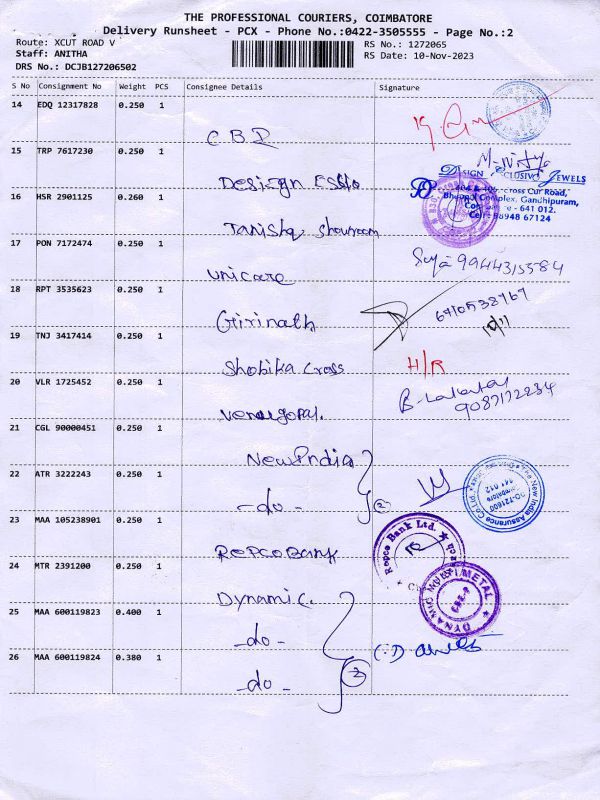 THE PROFESSIONAL COURIERS, COIMBATORE
Delivery Runsheet - PCX - Phone No.:0422-3505555 - Page No.:2
Route: XCUT ROAD V
Staff: ANITHA
DRS No.: DCJB127206502
RS No.: 1272065
RS Date: 10-Nov-2023
S No Consignment No Weight PCS Consignee Details Signature
14 EDQ 12317828 0.250 1
CBI
15 TRP 7617230 0.250 1
Design
DESIGN EXCLUSIVO JEWELS
Cross Cut Road,
Complex, Gandhipuram,
- 641 012.
Cell: 98948 67124
16 HSR 2901125 0.260 1
Tanishq showroom
17 PON 7172474 0.250 1
unicare
Surya 9944315584
18 RPT 3535623 0.250 1
Girinath
6710538767
10/11
19 TNJ 3417414 0.250 1
Shobika Cross
H/R
20 VLR 1725452 0.250 1
Venugopal.
9087172234
21 CGL 90000451 0.250 1
New India
22 ATR 3222243 0.250 1
-do-
2
The New India Assurance Co. Ltd.
23 MAA 105238901 0.250 1
REPCO Bank
Repco Bank Ltd.
24 MTR 2391200 0.250 1
Dynamic.
DYNAMIC METAL
25 MAA 600119823 0.400 1
-do-
26 MAA 600119824 0.380 1
-do-